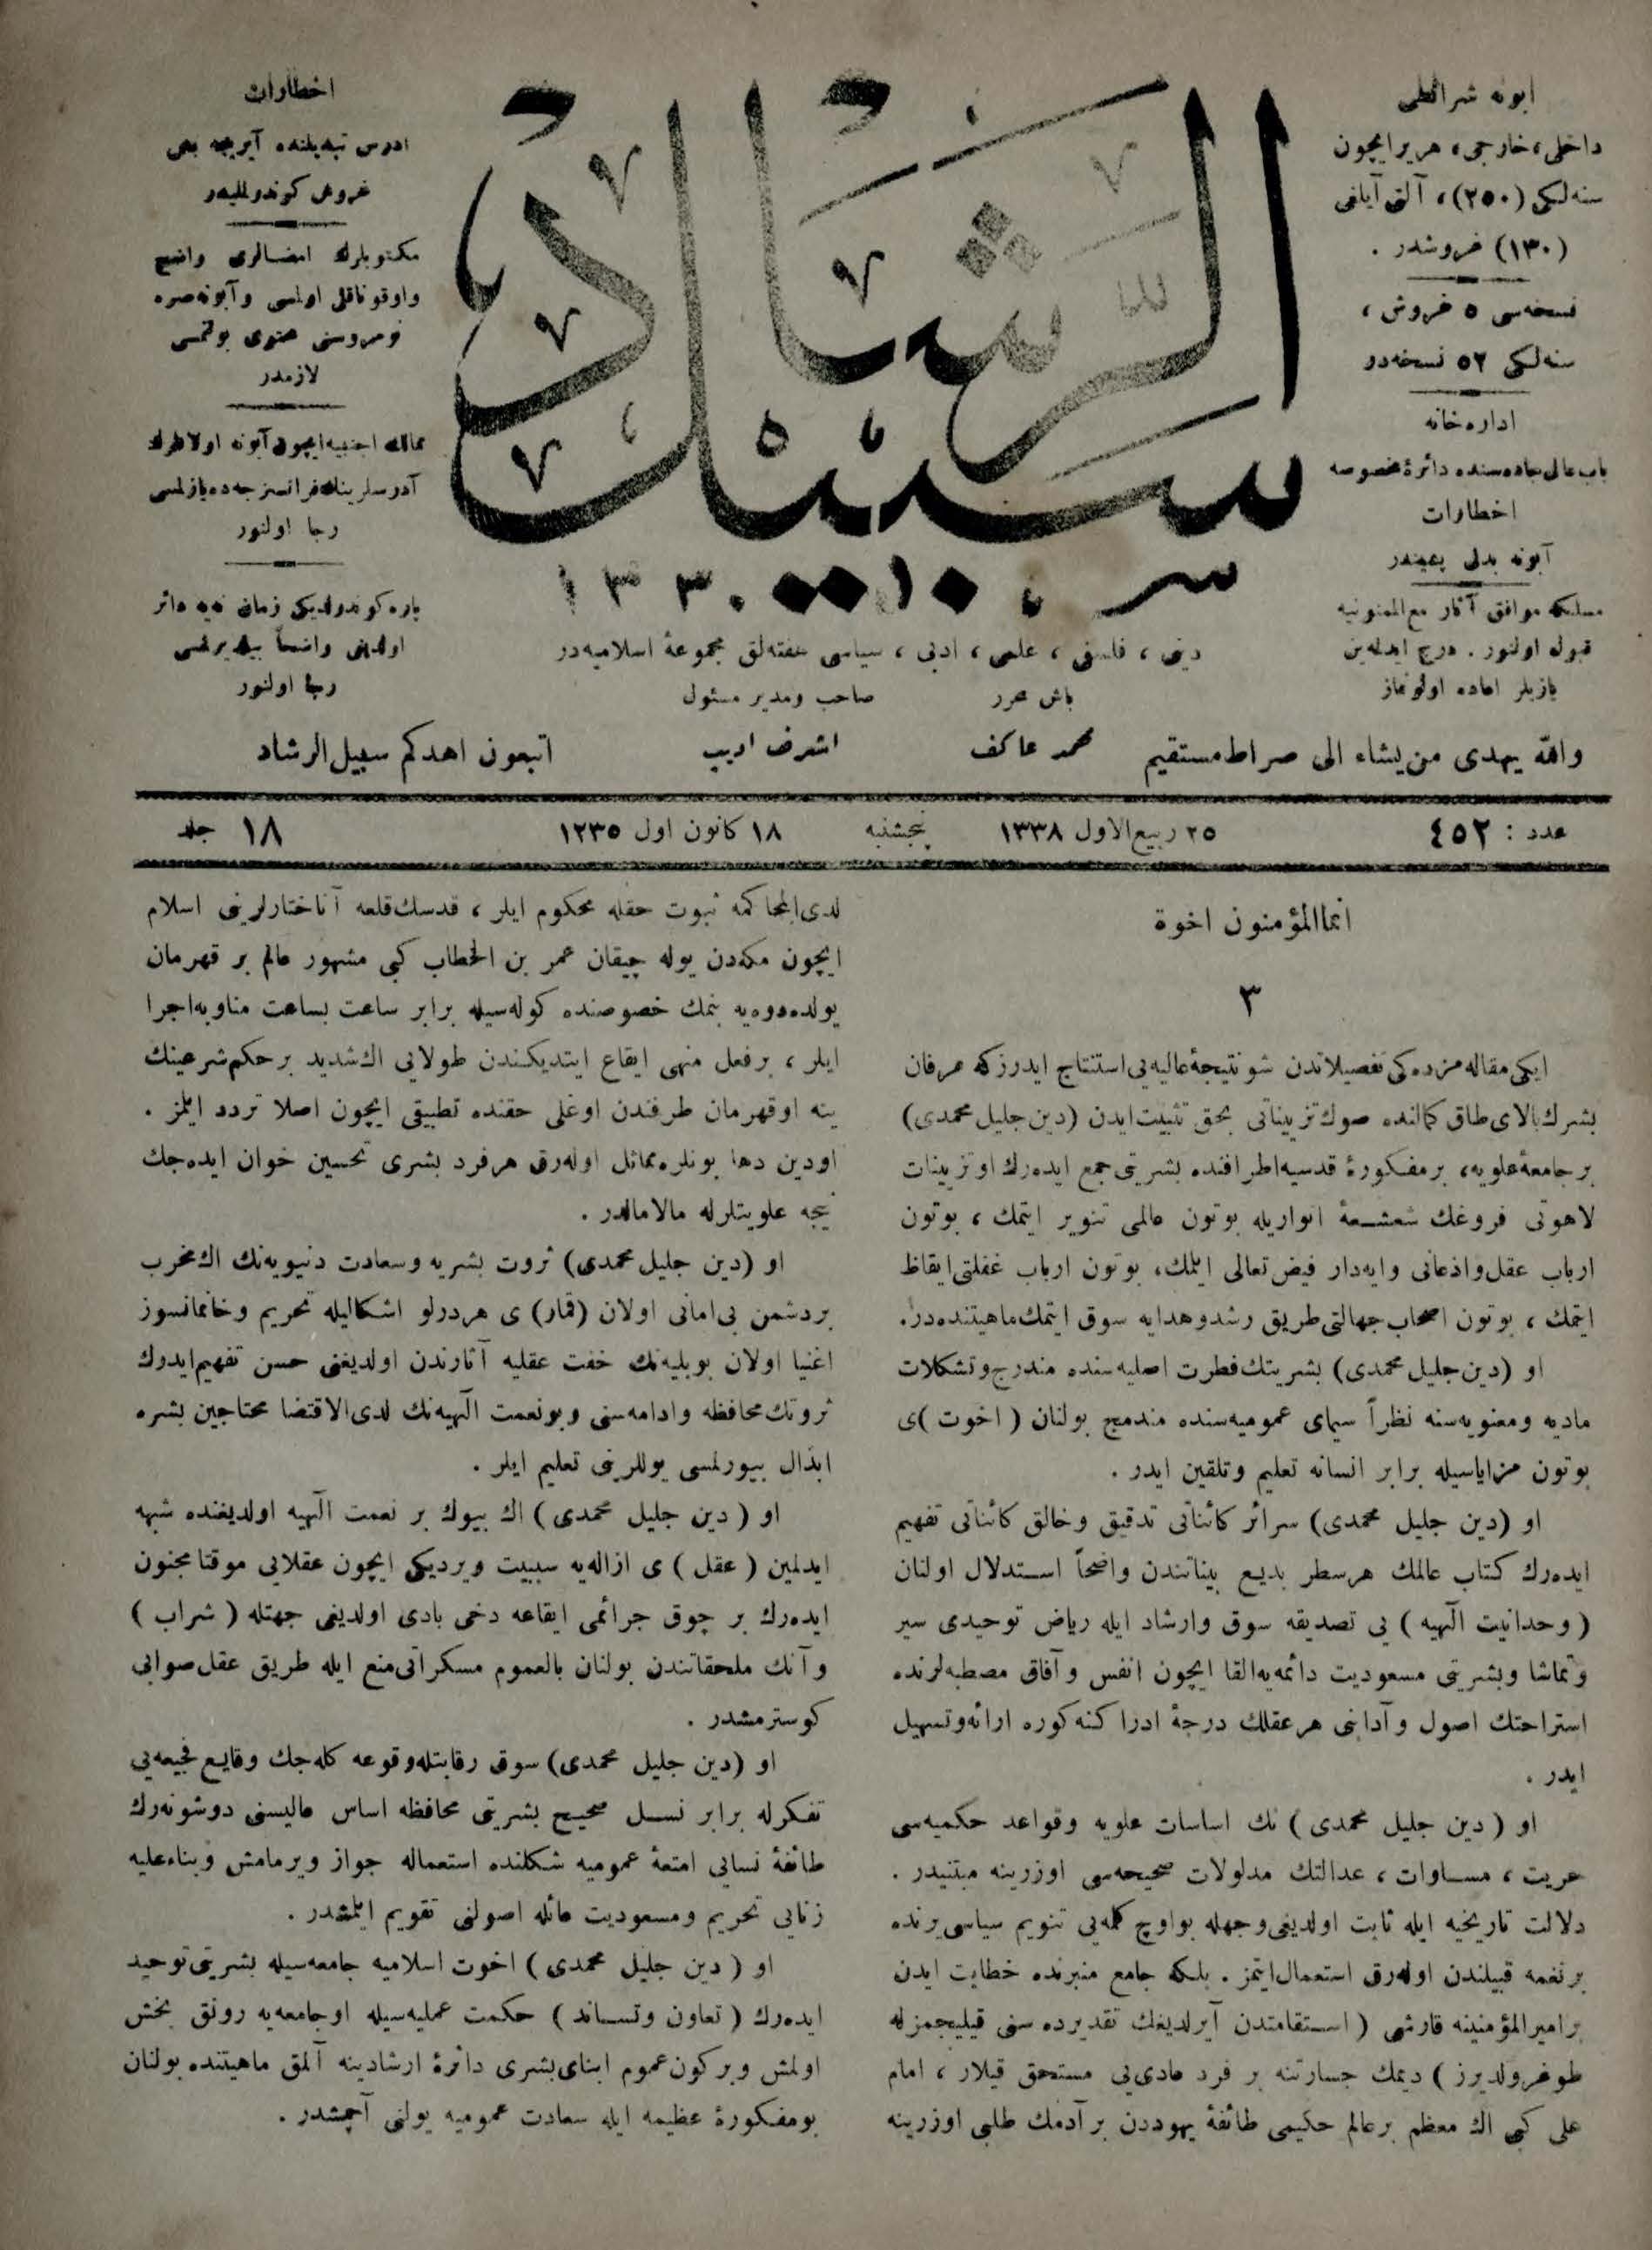 ابونه شرائطی
داخلی، خارجی، هر یر ایچون
سنه‌لكی (٢٥٠)، آلتی آیلغی
(١٣٠) غروشدر .
نسخه‌سی ٥ غروش ،
سنه‌لكی ٥٢ نسخه‌در
اداره‌خانه
باب عالی جاده‌سنده دائرۀ مخصوصه
اخطارات
آبونه بدلی پشیندر
مسلكه موافق آثار مع‌الممنونیه
قبول اولنور . درج ایدلمه‌ین
یازیلر اعاده اولونماز
سبیل الرشاد
١٣٣٠
دینی ، فلسفی ، علمی ، ادبی ، سیاسی هفته‌لق مجموعۀ اسلامیه‌در
باش محرر
صاحب ومدیر مسئول
محمد عاكف
اشرف ادیب
اخطارات
ادرس تبدیلنده آیریجه بش
غروش كوندرلملیدر
مكتوبلرك امضالری واضح
واوقوناقلی اولمسی وآبونه صره
نومروسنی محتوی بولنمسی
لازمدر
ممالك اجنبیه ایچون آبونه اولانلرك
آدرسلرینك فرانسزجه‌ده یازلمسی
رجا اولنور
پاره كوندرلدیكی زمان نه‌یه دائر
اولدیغی واضحاً بیلدیرلمسی
رجا اولنور
والله یهدی من یشاء الی صراط مستقیم
اتبعون اهدكم سبیل الرشاد
عدد : ٤٥٢
٢٥ ربیع الاول ١٣٣٨
پنجشنبه
١٨ كانون اول ١٢٣٥
جلد ١٨
انما المؤمنون اخوة
٣
ایكی مقاله‌مزده‌كی تفصیلاتدن شو نتیجۀ عالیه‌یی استنتاج ایدرزكه عرفان
بشرك بالای طاق كمالنده صوك تزییناتی بحق تثبیت ایدن (دین جلیل محمدی)
بر جامعۀ علویه، بر مفكورۀ قدسیه اطرافنده بشریتی جمع ایده‌رك او تزیینات
لاهوتی فروغك شعشعۀ انواریله بوتون عالمی تنویر ایتمك ، بوتون
ارباب عقل واذعانی وایه‌دار فیض تعالی ایلمك، بوتون ارباب غفلتی ایقاظ
ایتمك ، بوتون اصحاب جهالتی طریق رشد وهدایه سوق ایتمك ماهیتنده‌در.
او (دین جلیل محمدی) بشریتك فطرت اصلیه‌سنده مندرج وتشكلات
مادیه ومعنویه‌سنه نظراً سیمای عمومیه‌سنده مندمج بولنان (اخوت)ی
بوتون مزایاسیله برابر انسانه تعلیم وتلقین ایدر .
او (دین جلیل محمدی) سرائر كائناتی تدقیق وخالق كائناتی تفهیم
ایده‌رك كتاب عالمك هر سطر بدیع بیناتندن واضحاً استدلال اولنان
( وحدانیت الٓهیه ) یی تصدیقه سوق وارشاد ایله ریاض توحیدی سیر
وتماشا وبشریتی مسعودیت دائمه‌یه القا ایچون انفس وآفاق مصطبه‌لرنده
استراحتك اصول وآدابنی هر عقلك درجۀ ادراكنه كوره ارائه وتسهیل
ایدر .
او ( دین جلیل محمدی ) نك اساسات علویه وقواعد حكمیه‌سی
حریت ، مساوات ، عدالتك مدلولات صحیحه‌سی اوزرینه مبتنیدر .
دلالت تاریخیه ایله ثابت اولدیغی وجهله بو اوچ كلمه‌یی تنویم سیاسی یرنده
بر نغمه قبیلندن اوله‌رق استعمال ایتمز . بلكه جامع منبرنده خطابت ایدن
بر امیرالمؤمنینه قارشی ( استقامتدن آیرلدیغك تقدیرده سنی قیلیجمزله
طوغرولدیرز ) دیمك جسارتنه بر فرد عادی‌یی مستحق قیلار ، امام
علی كبی اك معظم بر عالم حكیمی طائفۀ یهوددن بر آدمك طلبی اوزرینه
لدی المحاكمه ثبوت حقله محكوم ایلر ، قدسك قلعه آناختارلرینی اسلام
ایچون مكه‌دن یوله چیقان عمر بن الخطاب كبی مشهور عالم بر قهرمان
یولده دوه‌یه بنمك خصوصنده كوله‌سیله برابر ساعت بساعت مناوبه اجرا
ایلر ، بر فعل منهی ایقاع ایتدیكندن طولایی اك شدید بر حكم شرعینك
ینه او قهرمان طرفندن اوغلی حقنده تطبیقی ایچون اصلا تردد ایلمز .
او دین دها بونلره مماثل اوله‌رق هر فرد بشری تحسین خوان ایده‌جك
نیجه علویتلرله مالامالدر .
او (دین جلیل محمدی) ثروت بشریه وسعادت دنیویه‌نك اك مخرب
بر دشمن بی‌امانی اولان (قمار) ی هر درلو اشكالیله تحریم وخانمانسوز
اغنیا اولان بو بلیه‌نك خفت عقلیه آثارندن اولدیغنی حسن تفهیم ایدرك
ثروتك محافظه وادامه‌سنی وبو نعمت الٓهیه‌نك لدی‌الاقتضا محتاجین بشره
ابذال بیورلمسی یوللرینی تعلیم ایلر .
او ( دین جلیل محمدی ) اك بیوك بر نعمت الٓهیه اولدیغنده شبهه
ایدلمین ( عقل ) ی ازاله‌یه سببیت ویردیكی ایچون عقلایی موقتا مجنون
ایده‌رك بر چوق جرائمی ایقاعه دخی بادی اولدیغی جهتله ( شراب )
وآنك ملحقاتندن بولنان بالعموم مسكراتی منع ایله طریق عقل صوابی
كوسترمشدر .
او (دین جلیل محمدی) سوق رقابتله وقوعه كله‌جك وقایع فجیعه‌یی
تفكرله برابر نسل صحیح بشریتی محافظه اساس عالیسنی دوشونه‌رك
طائفۀ نسایی امتعۀ عمومیه شكلنده استعماله جواز ویرمامش وبناءعلیه
زنایی تحریم ومسعودیت عائله اصولنی تقویم ایلمشدر .
او ( دین جلیل محمدی ) اخوت اسلامیه جامعه‌سیله بشریتی توحید
ایده‌رك ( تعاون وتساند ) حكمت عملیه‌سیله او جامعه‌یه رونق بخش
اولمش وبر كون عموم ابنای بشری دائرۀ ارشادینه آلمق ماهیتنده بولنان
بو مفكورۀ عظیمه ایله سعادت عمومیه یولنی آچمشدر .